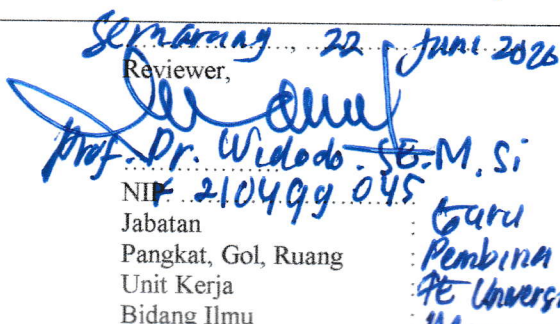 Semarang, 22 Juni 2020
Reviewer,
Prof. Dr. Widodo. SE. M. Si
NIK 210499 045
Jabatan : Guru
Pangkat, Gol, Ruang : Pembina
Unit Kerja : FE Universi
Bidang Ilmu :